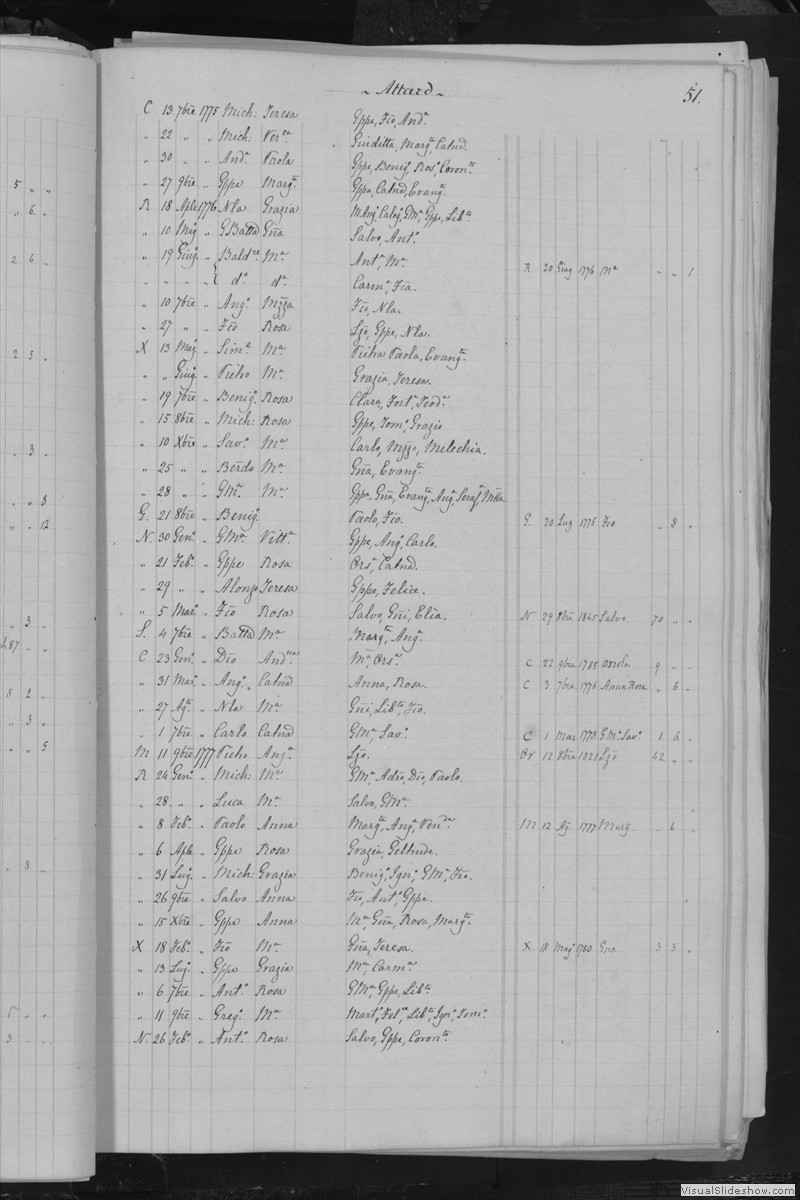 ~ Attard ~
51.
C 13 7bre 1775 Mich: Teresa Gppe, Fco, Anda.
" 22 " " Mich: Verca Giuditta, Margta, Catnd.
" 30 " " Anda Paola Gppe, Benigo, Rosa, Coronta.
5 " " " 27 9bre " Gppe Margta. Gppa, Catnd, Evanga.
" 6. " R 18 Aple 1776 Nla Grazia Libta.
" 10 Mago " GBatta Gña Salvo, Anto.
2 6 " " 19 Giugo " Baldre Ma Anta, Ma. R 20 Giug 1776 Ma " " 1
" " " " do. da. Carma, Fca.
" 10 7bre " Ango. Mzza Fco, Nla.
" 27 " " Fco Rosa Lzo, Gppe, Nla.
2 5 " X 13 Mago " Sime Ma Pietra Paola, Evangta.
" " Giugo " Pietro Ma Grazia, Teresa.
" 19 7bre " Benigo. Rosa Clara, Forta, Teoda.
" 15 8bre " Mich: Rosa Gppe, Tomo, Grazia
" 3 " " 10 Xbre " Savo. Ma Carlo, Mzzo, Melechia.
" 25 " " Berdo Ma Gña, Evangta.
" " 8 " 28 " " GMa. Ma Gppa, Gña, Evangta, Ango, Serafa,
" " 12 G. 21 8bre " Benigo. Paolo, Fco. G. 20 Lug 1775 Fco " 8 "
N. 30 Geno. " GMa. Vitta. Gppe, Ango, Carlo.
" 21 Febo. " Gppe Rosa Orsa, Catnd.
" 29 " " Alonzo Teresa Gppe, Felice.
" 3 " " 5 Maro. " Fco Rosa Salvo, Gñi, Elia. N 29 8bre 1845 Salvo 70 " "
87 " " S. 4 7bre " Batta Ma Margta, Ango.
C 23 Geno. " Dco Andna Ma, Orsa. C 22 9bre 1785 Orsola 9 " "
8 2 " " 31 Maro. " Ango. Catnd Anna, Rosa. C 3 7bre 1776 Anna Rosa " 6 "
" 3 " " 27 Ago. " Nla Ma Gñi, Libta, Fco.
" " 9 " 1 7bre " Carlo Catnd GMa, Savo. C 1 Mar 1778 GMa Savo 1 6 "
M 11 9bre 1777 Pietro Anga. Lzo. Or 12 8bre 1821 Lzo 42 " "
R 24 Geno. " Mich: Ma GMa, Adro, Dco, Paolo.
" 28 " " Luca Ma Salvo, GMa.
" 8 Febo. " Paolo Anna Margta, Ango, Venda. M 12 Ag. 1777 Marg. " 6 "
" 6 Aple " Gppe Rosa Grazia, Geltruda.
" 8 " " 31 Lugo. " Mich: Grazia Benigo, Igno, GMa, Fco.
" 26 9bre " Salvo Anna Fco, Anto, Gppe.
" 15 Xbre " Gppe Anna Ma, Gña, Rosa, Margta.
X 18 Febo. " Fco Ma Gña, Teresa. X. 18 Mag. 1780 Gna 3 3 "
" 13 Lugo. " Gppe Grazia Ma, Carma.
" 6 7bre " Anto. Rosa GMa, Gppe, Libta.
" 11 9bre " Grego. Ma Libta, Igno, Tomo.
3 N. 26 Febo. " Anto. Rosa Salvo, Gppe, Coronta.
VisualSlideshow.com